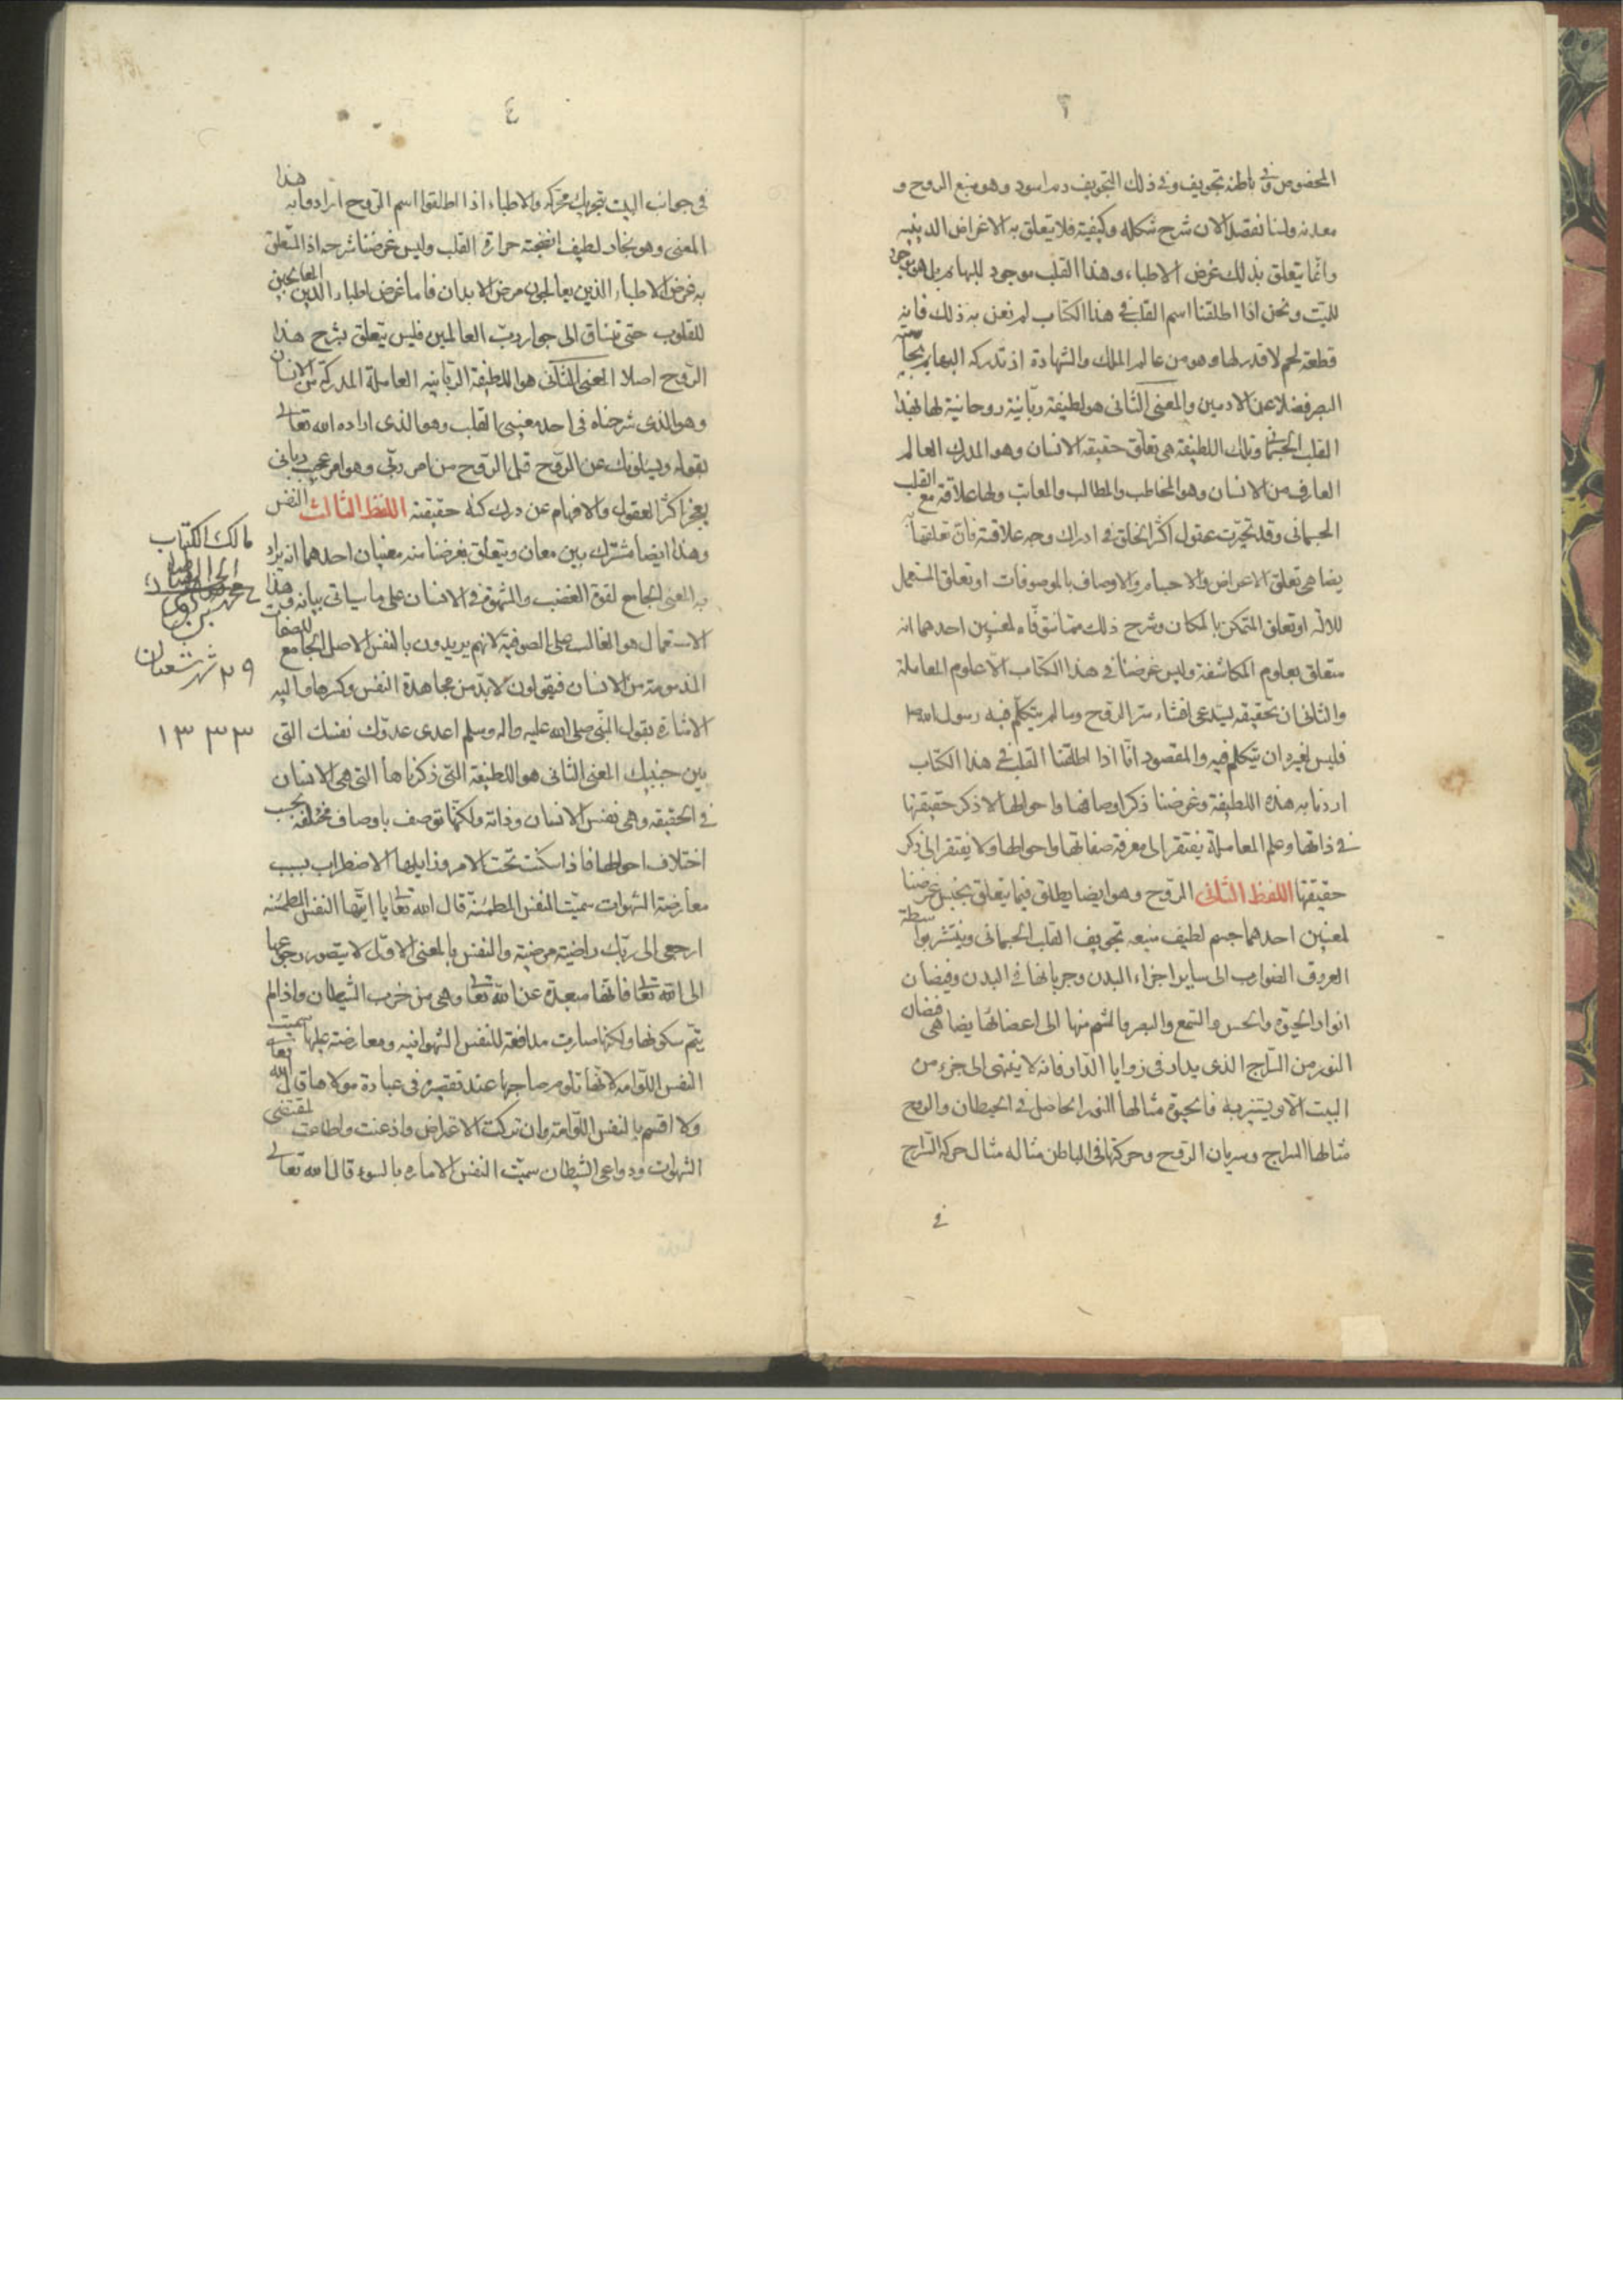 ٣
المخصوص وفى باطنه تجويف وفى ذلك التجويف دم اسود وهو منبع الروح و
معدنه ولسنا نفصل الان شرح شكله وكيفيته فلا يتعلق به الاغراض الدينيه
وانّما يتعلق بذلك غرض الاطباء وهذا القلب موجود للبهايم بل هو موجود
للميّت ونحن اذا اطلقنا اسم القلب فى هذا الكتاب لم نعن به ذلك فانه
قطعة لحم لا قدر لها وهو من عالم الملك والشهادة اذ تدركه البهايم بحاسّة
البصر فضلا عن الادميين والمعنى الثّانى هو لطيفة ربّانيّة روحانية لها بهذا
القلب الجسمانى وتلك اللطيفة هى تعلّق حقيقة الانسان وهو المدرك العالم
العارف من الانسان وهو المخاطب والمطالب والمعاتب ولها علاقة مع القلب
الجسمانى وقد تحيّرت عقول اكثر الخلق فى ادراك وجه علاقته فانّ تعلقها به
يضاهى تعلق الاعراض والاجسام والاوصاف بالموصوفات او تعلق المستعمل
للالة او تعلق المتمكن بالمكان وشرح ذلك ممّا نتوقّاه لمعنيين احدهما انه
متعلق بعلوم المكاشفة وليس غرضنا فى هذا الكتاب الاّ علوم المعاملة
والثانى ان تحقيقه يستدعى افشاء سرّ الروح وما لم يتكلّم فيه رسول الله ص
فليس لغيره ان يتكلم فيه والمقصود انّا اذا اطلقنا القلب فى هذا الكتاب
اردنا به هذه اللطيفة وغرضنا ذكر اوصافها واحوالها لا ذكر حقيقتها
فى ذاتها وعلم المعاملة يفتقر الى معرفة صفاتها واحوالها ولا يفتقر الى ذكر
حقيقتها اللفظ الثّانى الرّوح وهو ايضا يطلق فيما يتعلق بجنس غرضنا
لمعنيين احدهما جسم لطيف منبعه تجويف القلب الجسمانى وينتشر بواسطة
العروق الضوارب الى ساير اجزاء البدن وجريانها فى البدن وفيضان
انوار الحيوة والحس والسّمع والبصر والشم منها الى اعضائها يضاهى فيضان
النور من السّراج الذى يدار فى زوايا الدّار فانه لا ينتهى الى جزء من
البيت الاّ ويستنير به فالحيوة مثالها النور الحاصل فى الحيطان والروح
مثالها السراج وسريان الرّوح وحركتها فى الباطن مثاله مثال حركة السّراج
فى
٤
فى جوانب البيت بتحريك محرّكه والاطباء اذا اطلقوا اسم الرّوح ارادوا به هذا
المعنى وهو بخار لطيف انضجته حرارة القلب وليس غرضنا شرحه اذ المتعلق
به غرض الاطباء الذين يعالجون مرض الابدان فاما غرض اطباء الدين المعالجين
للقلوب حتى تنساق الى جوار ربّ العالمين فليس يتعلق بشرح هذا
الرّوح اصلا المعنى الثّانى هو اللطيفة الرّبانيه العاملة المدركة من الانسان
وهو الذى شرحناه فى احد معنيى القلب وهو الذى اراده الله تعالى
بقوله ويسئلونك عن الرّوح قل الرّوح من امر ربّى وهو امر عجيب ربانى
يعجز اكثر العقول والافهام عن درك كنه حقيقته اللفظ الثالث النفس
وهذا ايضا مشترك بين معان ويتعلق بغرضنا منه معنيان احدهما انه يراد
به المعنى الجامع لقوة الغضب والشهوة فى الانسان على ما سياتى بيانه وهذا
الاستعمال هو الغالب على الصوفية لانهم يريدون بالنفس الاصل الجامع للصفات
المذمومة من الانسان فيقولون لا بدّ من مجاهدة النفس وكسرها واليه
الاشارة بقول النّبى صلى الله عليه واله وسلم اعدى عدوّك نفسك التى
بين جنبيك المعنى الثانى هو اللطيفة التى ذكرناها التى هى الانسان
فى الحقيقه وهى نفس الانسان وذاته ولكنّها توصف باوصاف مختلفة بحسب
اختلاف احوالها فاذا سكنت تحت الامر وزايلها الاضطراب بسبب
معارضة الشهوات سميّت النفس المطمئنة قال الله تعا يا ايتها النفس المطمئنه
ارجعى الى ربّك راضية مرضية والنفس بالمعنى الاوّل لا يتصور رجوعها
الى الله تعا فانها مبعدة عن الله تعا وهى من حزب الشيطان واذا لم
يتمّ سكونها ولكنها صارت مدافعة للنفس الشهوانيه ومعارضة عليها سميت
النفس اللوّامه لانّها تلوم صاحبها عند تقصيره فى عبادة مولاها قال الله تعا
ولا اقسم بالنفس اللوّامة وان تركت الاعتراض واذعنت واطاعت لمقتضى
الشهوات ودواعى الشيطان سميّت النفس الاماره بالسوء قال الله تعالى
مالك الكتاب
٢٩ شهر شعبان
١٣٣٣